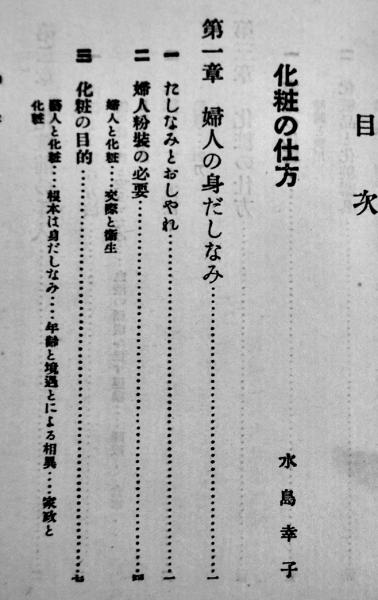 目次
化粧の仕方
水島幸子
第一章 婦人の身だしなみ……一
一 たしなみとおしやれ……一
二 婦人粉裝の必要……四
婦人と化粧…交際と衞生
三 化粧の目的……七
藝人と化粧…根本は身だしなみ…年齡と境遇とによる相異…家政と
化粧